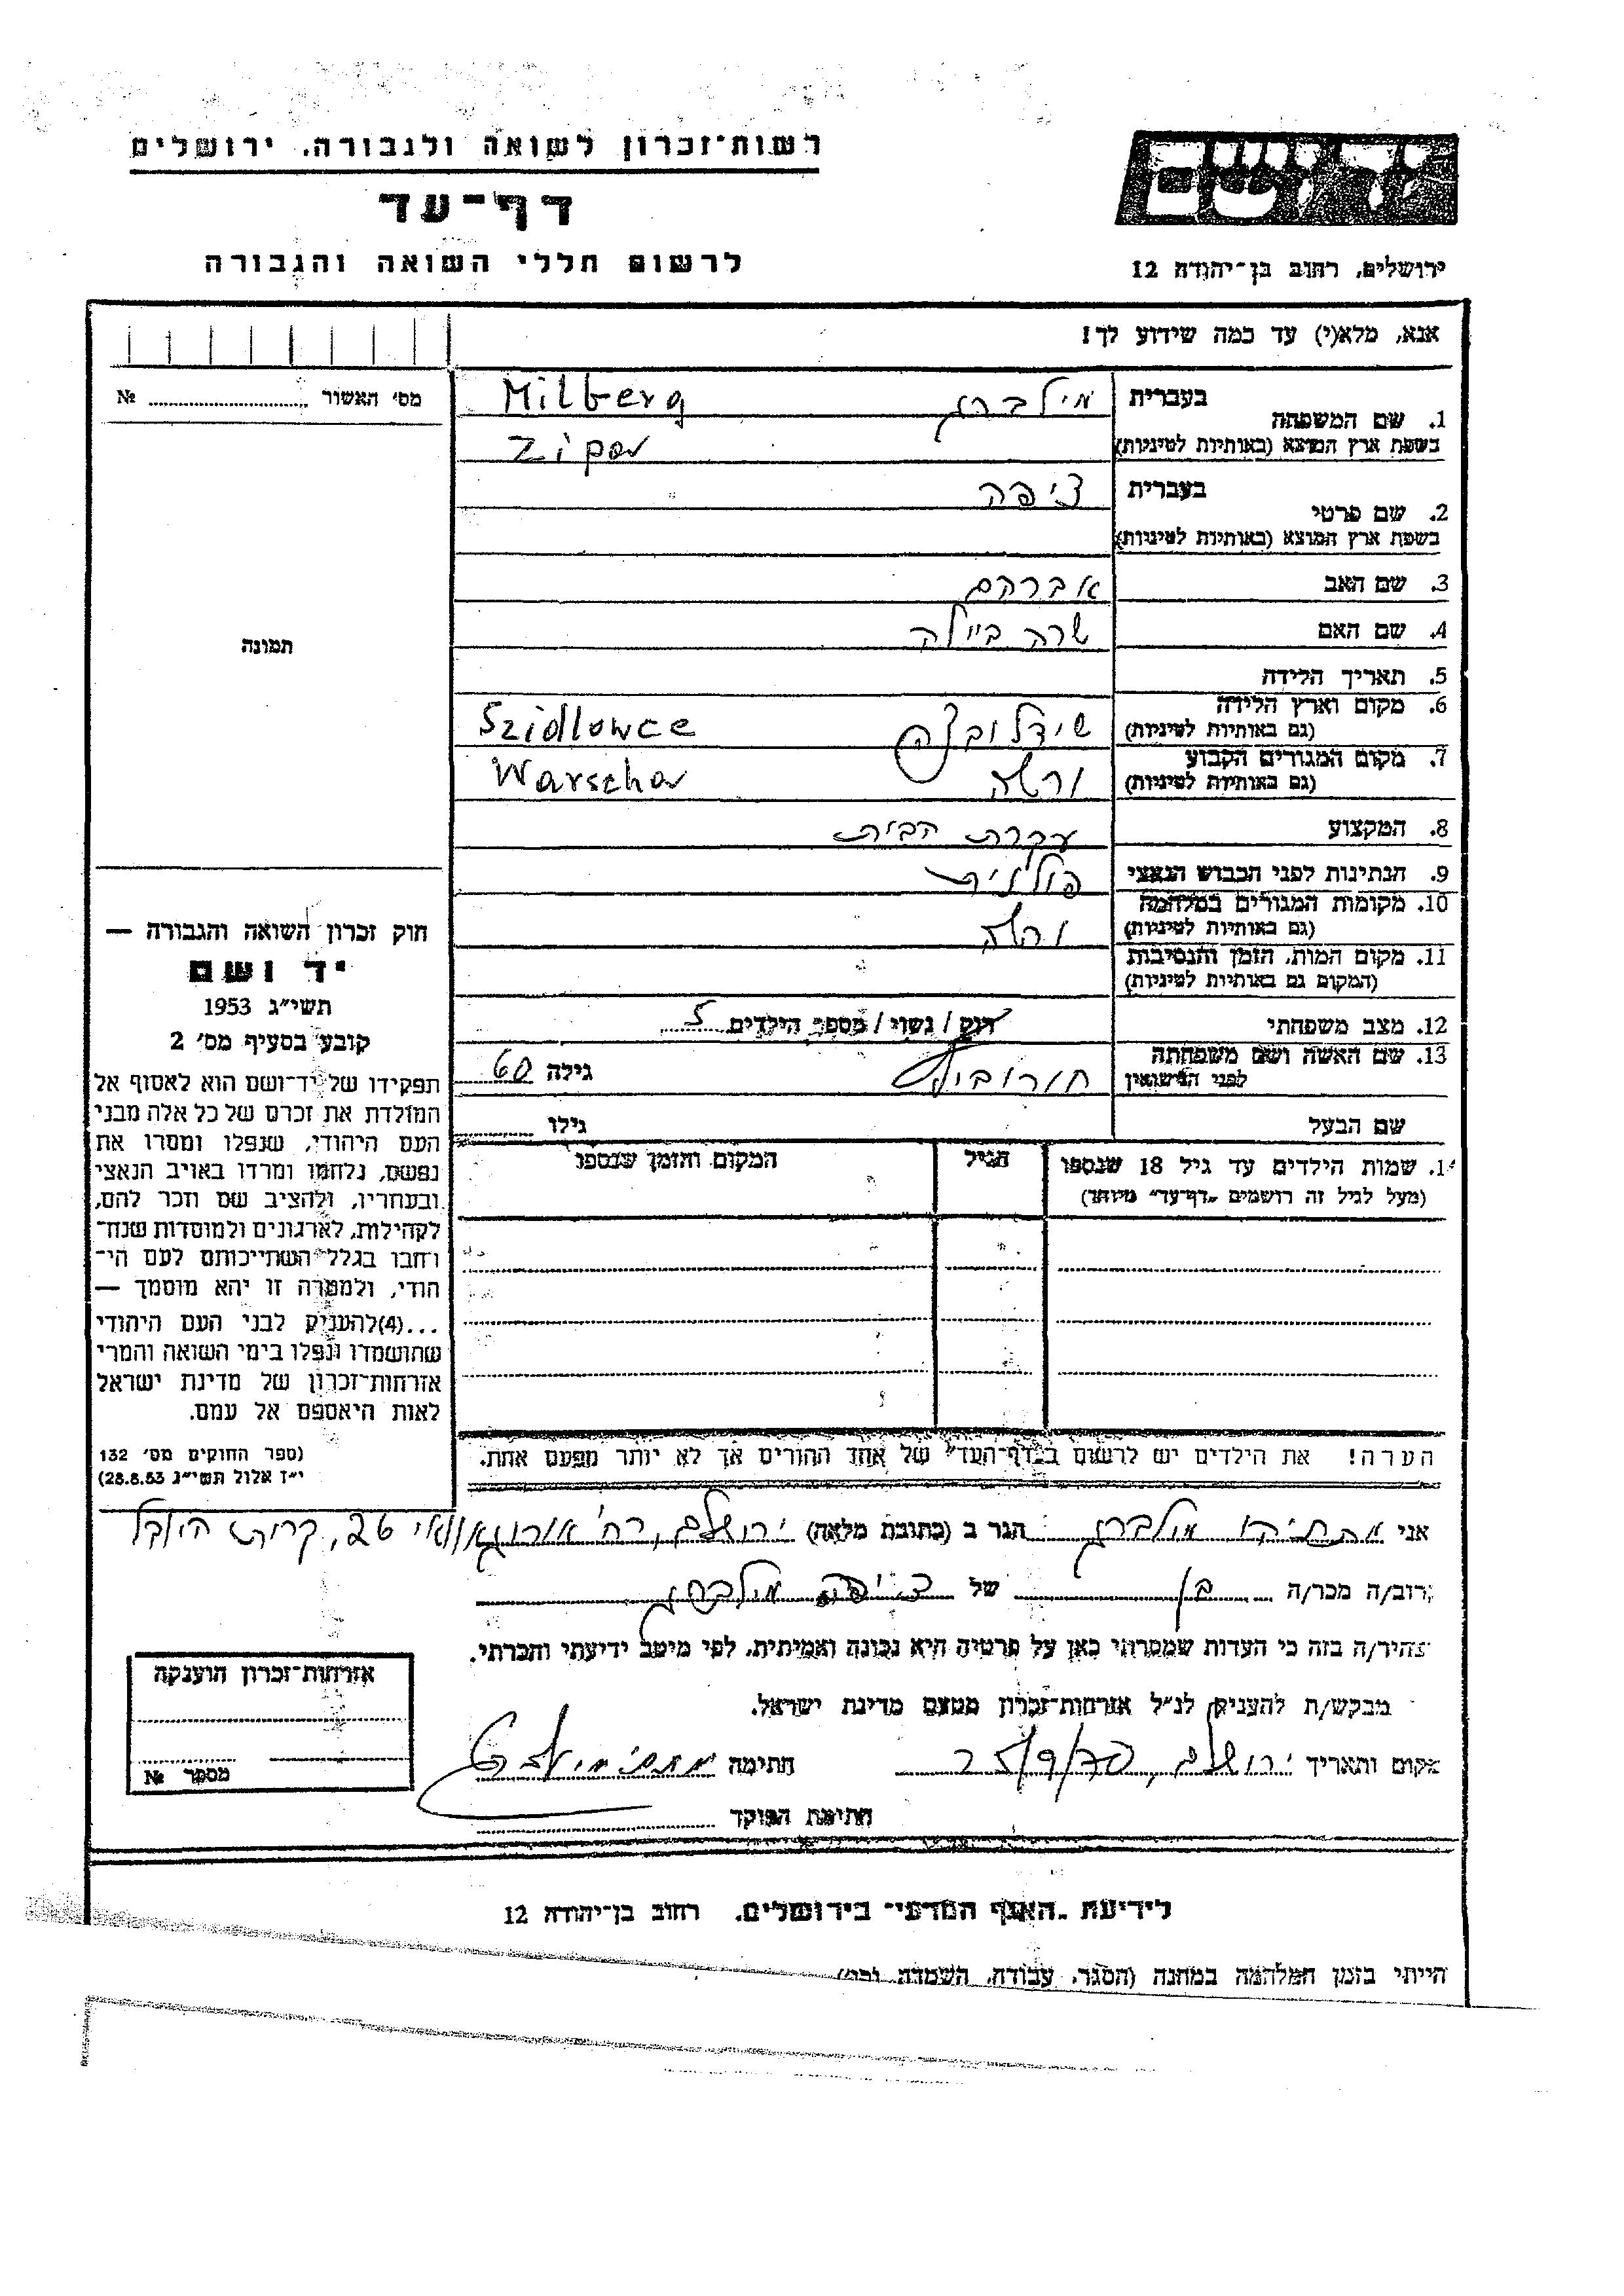 רשות־זכרון לשואה ולגבורה, ירושלים
דף־עד
לרשום חללי השואה והגבורה
יד ושם
ירושלים, רחוב בן־יהודה 12
אנא, מלא(י) עד כמה שידוע לך!
מס׳ האשור № ........
תמונה
1. שם המשפחה
בעברית מילברג Milberg
בשפת ארץ המוצא (באותיות לטיניות)
2. שם פרטי
בעברית ציפה
בשפת ארץ המוצא (באותיות לטיניות)
3. שם האב אברהם
4. שם האם שרה ביילה
5. תאריך הלידה
6. מקום וארץ הלידה
(גם באותיות לטיניות) שידלובצה Szidlowce
7. מקום המגורים הקבוע
(גם באותיות לטיניות) ורשה
8. המקצוע עקרת הבית
9. הנתינות לפני הכבוש הנאצי פולנית
10. מקומות המגורים במלחמה
(גם באותיות לטיניות) ורשה
11. מקום המות, הזמן והנסיבות
(המקום גם באותיות לטיניות)
12. מצב משפחתי רוק / נשוי / מספר הילדים 5
13. שם האשה ושם משפחתה
לפני הנישואין גילה 60
שם הבעל גילו
שמות הילדים עד גיל 18 שנספו
(מעל לגיל זה רושמים „דף־עד״ מיוחד)
הגיל
המקום והזמן שנספו
הערה! את הילדים יש לרשום ב„דף־העד״ של אחד ההורים אך לא יותר מפעם אחת.
חוק זכרון השואה והגבורה —
יד ושם
תשי״ג 1953
קובע בסעיף מס׳ 2
תפקידו של יד־ושם הוא לאסוף אל
המולדת את זכרם של כל אלה מבני
העם היהודי, שנפלו ומסרו את
נפשם, נלחמו ומרדו באויב הנאצי
ובעחריו, ולהציב שם וזכר להם,
לקהילות, לארגונים ולמוסדות שנח־
רחבו בגלל השתייכותם לעם הי־
הודי, ולמטרה זו יהא מוסמך —
...(4) להעניק לבני העם היהודי
שהושמדו ונפלו בימי השואה והמרי
אזרחות־זכרון של מדינת ישראל
לאות היאספם אל עמם.
(ספר החוקים מס׳ 132
י״ז אלול תשי״ג 28.8.53)
אני מילברג הגר ב (כתובת מלאה) ירושלים, רח׳ 26, קרית היובל
רוב/ה מכר/ה בן של ציפה מילברג
צהיר/ה בזה כי העדות שמסרתי כאן על פרטיה היא נכונה ואמיתית, לפי מיטב ידיעתי והכרתי.
מבקש/ת להעניק לנ״ל אזרחות־זכרון מטעם מדינת ישראל.
מקום ותאריך ירושלים, 25/9/70 חתימה
חתימת הפוקד
אזרחות־זכרון הוענקה
מספר №
לידיעת „האגף המדעי״ בירושלים, רחוב בן־יהודה 12
הייתי בזמן המלחמה במחנה (הסגר, עבודה, השמדה וכו׳)